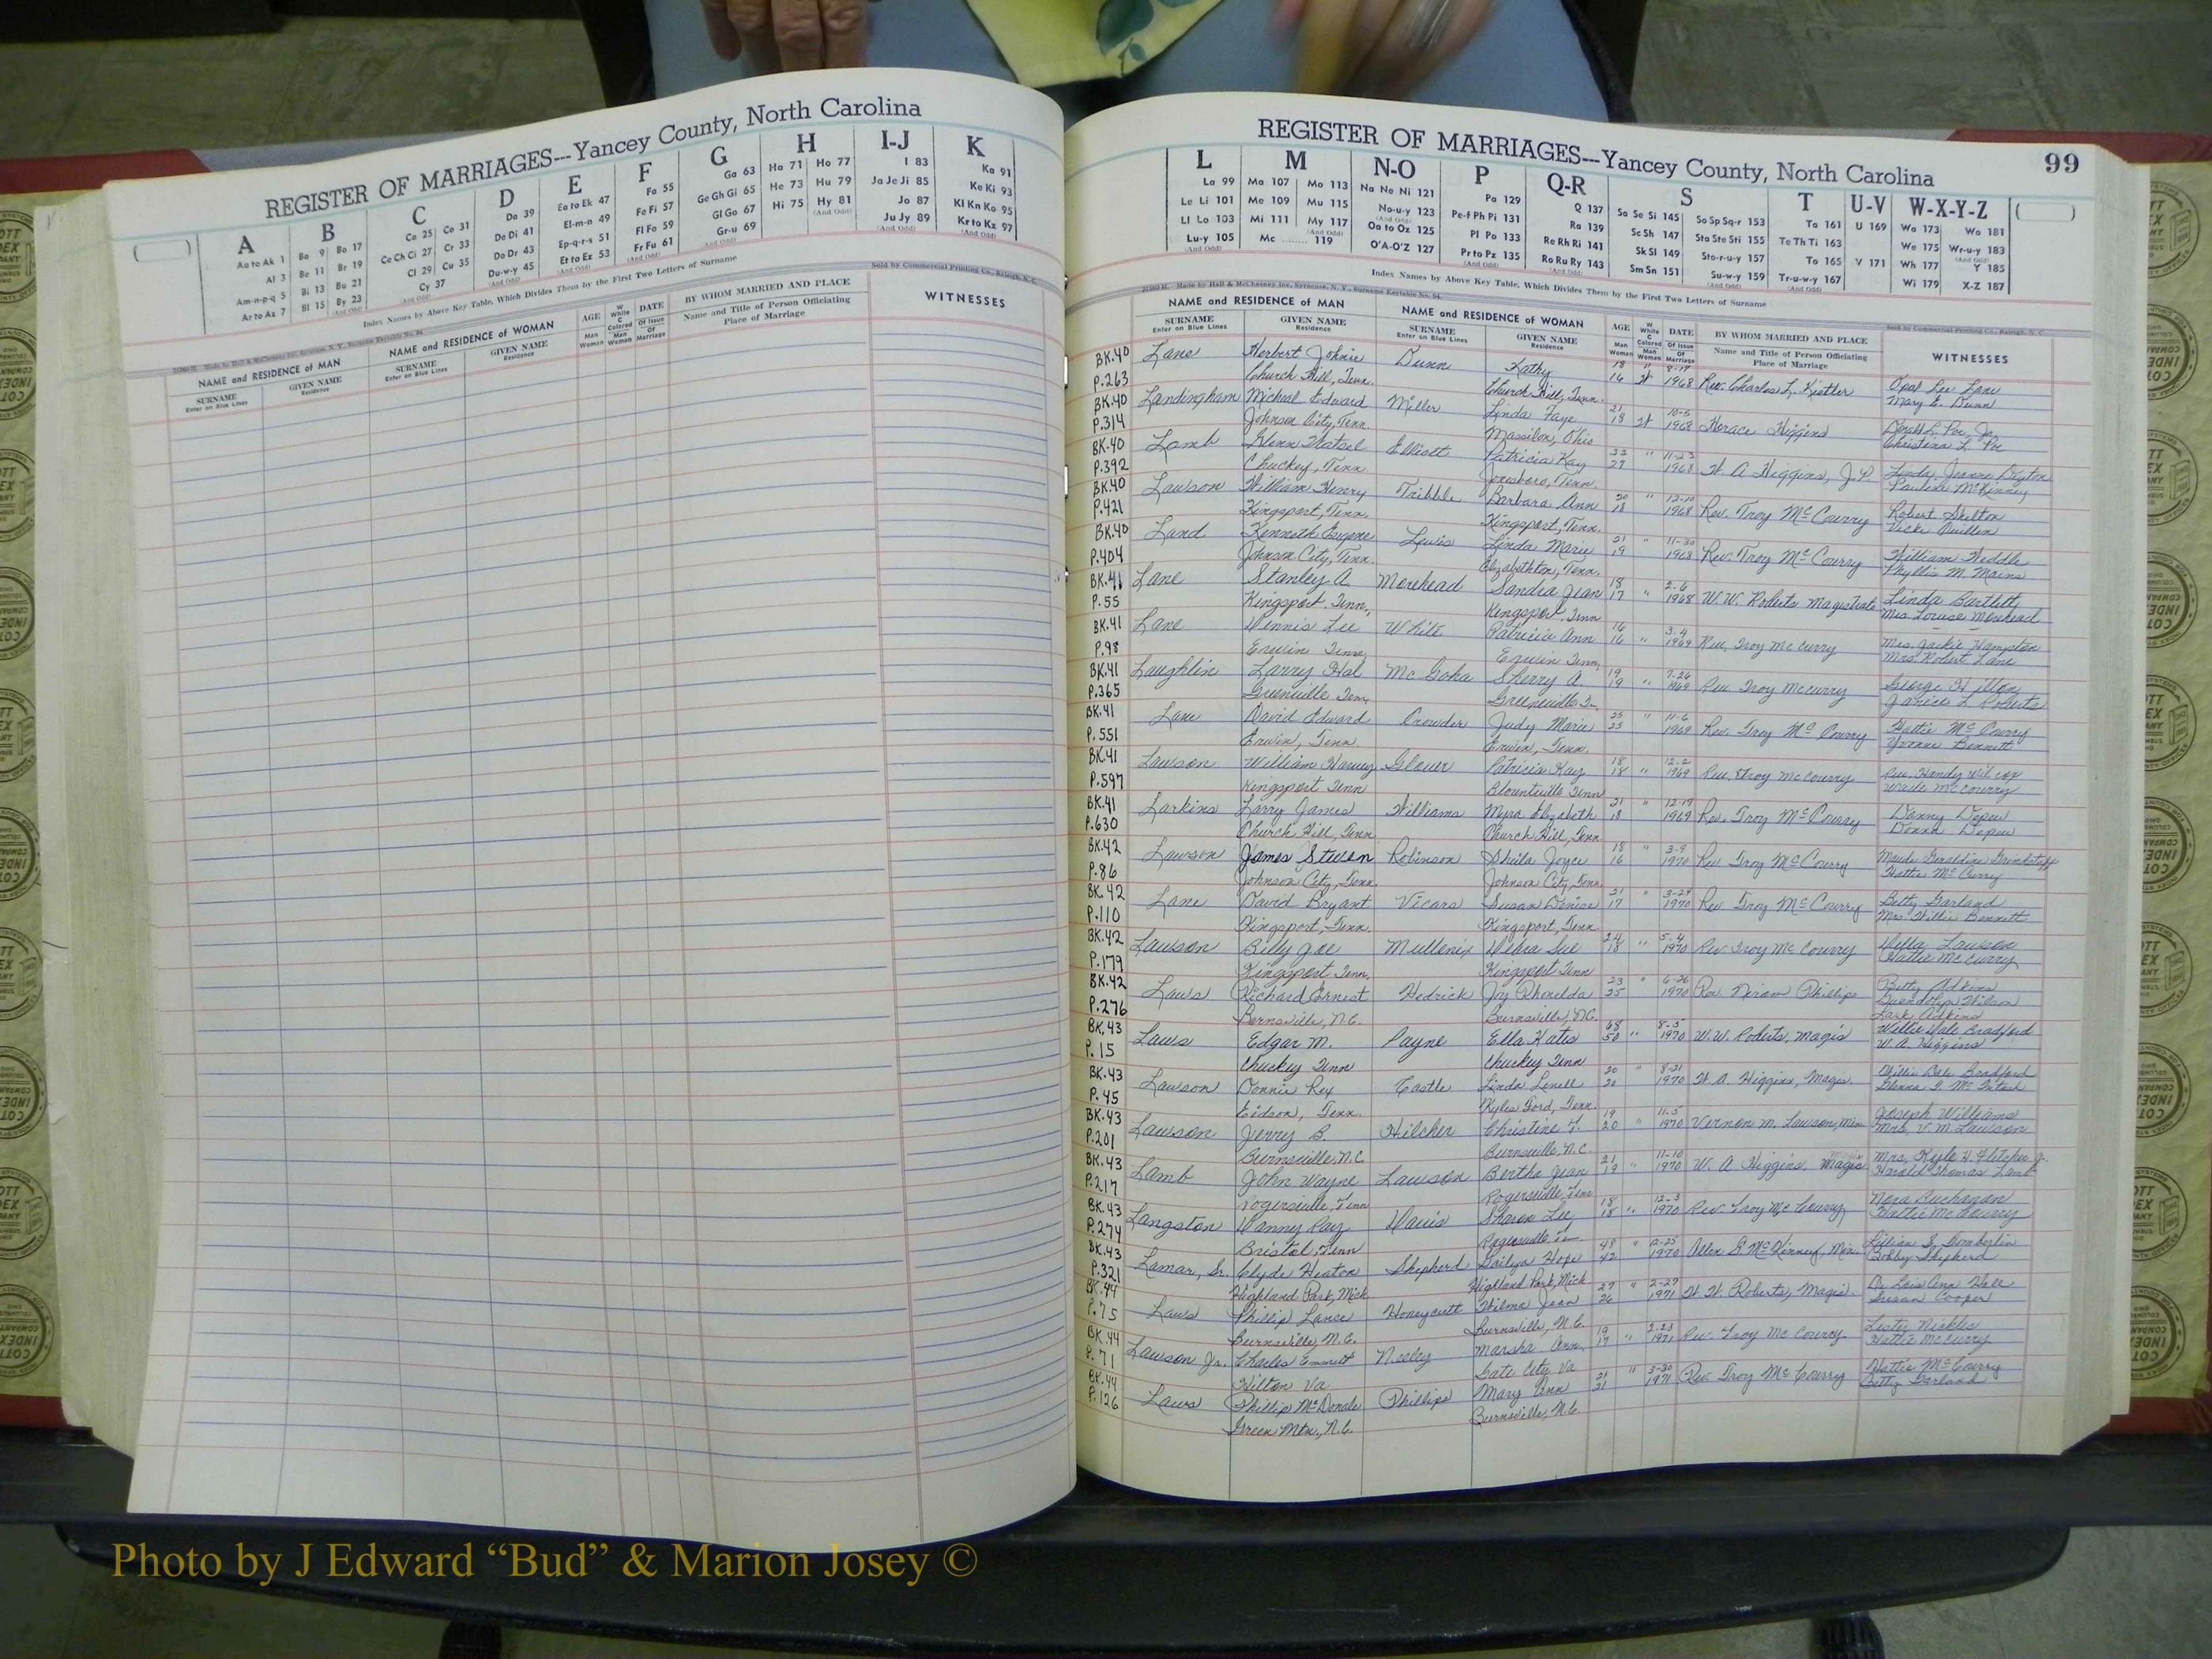 REGISTER OF MARRIAGES---Yancey County, North Carolina
A B C D E F G H I-J K
Aa to Ak 1 Ba 9 Bo 17 Ca 25 Co 31 Da 39 Ea to Ek 47 Fa 55 Ga 63 Ha 71 Ho 77 I 83 Ka 91
Al 3 Be 11 Br 19 Ce Ch Ci 27 Cr 33 De Di 41 El-m-n 49 Fe Fi 57 Ge Gh Gi 65 He 73 Hu 79 Ja Je Ji 85 Ke Ki 93
Am-n-p-q 5 Bi 13 Bu 21 Cl 29 Cu 35 Do Dr 43 Ep-q-r-s 51 Fl Fo 59 Gl Go 67 Hi 75 Hy 81 Jo 87 Kl Kn Ko 95
Ar to Az 7 Bl 15 By 23 Cy 37 Du-w-y 45 Et to Ez 53 Fr Fu 61 Gr-u 69 Ju Jy 89 Kr to Kz 97
Index Names by Above Key Table, Which Divides Them by the First Two Letters of Surname
Sold by Commercial Printing Co., Raleigh, N. C.
NAME and RESIDENCE of MAN NAME and RESIDENCE of WOMAN AGE DATE BY WHOM MARRIED AND PLACE WITNESSES
SURNAME GIVEN NAME SURNAME GIVEN NAME Name and Title of Person Officiating
Enter on Blue Lines Residence Enter on Blue Lines Residence Place of Marriage
REGISTER OF MARRIAGES---Yancey County, North Carolina 99
L M N-O P Q-R S T U-V W-X-Y-Z
La 99 Ma 107 Mo 113 Na Ne Ni 121 Pa 129 Q 137 Sa Se Si 145 So Sp Sq-r 153 Ta 161 U 169 Wa 173 Wo 181
Le Li 101 Me 109 Mu 115 No-u-y 123 Pe-f Ph Pi 131 Ra 139 Sc Sh 147 Sta Ste Sti 155 Te Th Ti 163 We 175 Wr-u-y 183
Ll Lo 103 Mi 111 My 117 Oa to Oz 125 Pl Po 133 Re Rh Ri 141 Sk Sl 149 Sto-r-u-y 157 To 165 V 171 Wh 177 Y 185
Lu-y 105 Mc 119 O'A-O'Z 127 Pr to Pz 135 Ro Ru Ry 143 Sm Sn 151 Su-w-y 159 Tr-u-w-y 167 Wi 179 X-Z 187
Index Names by Above Key Table, Which Divides Them by the First Two Letters of Surname
NAME and RESIDENCE of MAN NAME and RESIDENCE of WOMAN AGE DATE BY WHOM MARRIED AND PLACE WITNESSES
SURNAME GIVEN NAME SURNAME GIVEN NAME Name and Title of Person Officiating
Enter on Blue Lines Residence Enter on Blue Lines Residence Place of Marriage
BK.40 Lane Herbert Johnie Dunn Kathy 18 " 8-17 Rev. Charles L. Opal Lee Lane
P.263 Church Hill, Tenn. Church Hill, Tenn. 16 1968 Mary E. Dunn
BK.40 Landingham Micheal Edward Miller Linda Faye 21 10-5 Horace Higgins
P.314 Johnson City, Tenn. Massilon, Ohio 18 1968 Christina L.
BK.40 Lamb Glenn Elliott Patricia Kay " 11-23 W. A Higgins, J.P.
P.392 Chuckey, Tenn. Jonesboro, Tenn. 1968 Pauline McKinney
BK.40 Lawson William Henry Tribble Barbara Ann 20 " 12-10 Rev. Troy McCourry Robert Shelton
P.421 Kingsport, Tenn. Kingsport, Tenn. 18 1968
BK.40 Land Kenneth Eugene Lewis Linda Marie 21 " 11-30 Rev. Troy McCourry William Weddle
P.404 Johnson City, Tenn. Elizabethton, Tenn. 19 1968 Phyllis M. Mains
BK.41 Lane Stanley A. Morehead Sandra Jean 18 2-6 W.W. Roberts Magistrate Linda Bartlett
P.55 Kingsport Tenn., Kingsport Tenn 17 " 1968 Mrs. Louise Morehead
BK.41 Lane Dennis Lee White Patricia Ann 16 3-4 Rev. Troy McCurry Mrs. Jackie Hampton
P.98 Erwin Tenn, Erwin Tenn, 16 " 1969 Mrs. Robert Lane
BK.41 Laughlin Larry Hal McGoha Sherry A. 19 7-26 Rev. Troy McCurry George Hilton
P.365 Greenville Tenn, 19 " 1969 Janice L Roberts
BK.41 Lane David Edward Crowder Judy Marie 25 " 11-6 Rev. Troy McCourry Hattie McCourry
P.551 Erwin, Tenn. Erwin, Tenn. 1969 Yvonne Bennett
BK.41 Lawson William Harvey Glover Patricia Kay 18 12-2 Rev. Troy McCourry
P.597 Kingsport Tenn Blountville Tenn 18 " 1969 McCourry
BK.41 Larkins Larry James Williams Myra Elizabeth 21 " 12-19 Rev. Troy McCourry Danny Depew
P.630 Church Hill, Tenn Church Hill, Tenn 18 1969 Donna Depew
BK.42 Lawson James Steven Robinson Sheila Joyce 18 " 3-9 Rev Troy McCourry Maude Geraldine Grindstaff
P.86 Johnson City, Tenn. Johnson City, Tenn 16 1970 Hattie McCurry
BK.42 Lane David Bryant Vicars Susan Denise 21 " Rev Troy McCourry Betty Garland
P.110 Kingsport, Tenn. Kingsport, Tenn 17 1970 Mrs. Willie Bennett
BK.42 Lawson Billy Joe Mullenix Debra Sue 24 5-4 Rev Troy McCourry Della Lawson
P.179 Kingsport Tenn, Kingsport Tenn 18 " 1970 Hattie McCurry
BK.42 Laws Richard Ernest Hedrick Joy Rhonelda 23 " 6-26 Rev. Niram Phillips Betty Adkins
P.276 Burnsville, N.C. Burnsville, N.C. 25 1970 Gwendolyn Wilson
Lark Adkins
BK.43 Laws Edgar M. Payne Ella Kates 68 8-5 W.W. Roberts, Magis Willie Dale Bradford
P.15 Chuckey Tenn Chuckey Tenn 50 " 1970 W.A. Higgins
BK.43 Lawson Donnie Ray Castle Linda Lenell 20 " 8-21 W.A. Higgins, Magis. Willie Dale Bradford
P.45 Eidson, Tenn. Kyles Ford, Tenn. 20 1970
BK.43 Lawson Jerry B. Hilcher Christine 19 11-5 Vernon M. Lawson, Min Joseph Williams
P.201 Burnsville, N.C Burnsville, N.C. 20 " 1970 Mrs. V.M. Lawson
BK.43 Lamb John Wayne Lawson Bertha Jean 21 11-10 W. A Higgins, Magis Mrs. Kyle H. Fletcher Jr.
P.217 Rogersville, Tenn Rogersville, Tenn 19 " 1970 Harold Thomas Lamb
BK.43 Langston Danny Ray Davis Sharon Lee 18 12-3 Rev. Troy McCourry Nora Buchanan
P.274 Bristol, Tenn 18 " 1970 Hattie McCourry
BK.43 Lamar, Sr. Clyde Heaton Shepherd Hope 48 " 12-25 McKinney, Min. Lillian S.
P.321 Highland Park, Mich Highland Park, Mich 42 1970 Bobby Shepherd
BK.44 Laws Phillip Lance Honeycutt Wilma Jean 27 " 2-27 W. W. Roberts, Magis. Lois Ann Hall
P.75 Burnsville, N.C. Burnsville, N.C. 26 1971 Susan Cooper
BK.44 Lawson Jr. Charles Emmett Neeley Marsha Ann, 19 2-23 Rev. Troy McCourry Nickles
P.71 Hilton Va Gate City Va 17 " 1971 Hattie McCurry
BK.44 Laws Phillip McDonald Phillips Mary Ann 21 " 3-30 Rev. Troy McCourry Hattie McCourry
P.126 Green Mtn., N.C. Burnsville, N.C. 21 1971 Betty Garland
Photo by J Edward “Bud” & Marion Josey ©